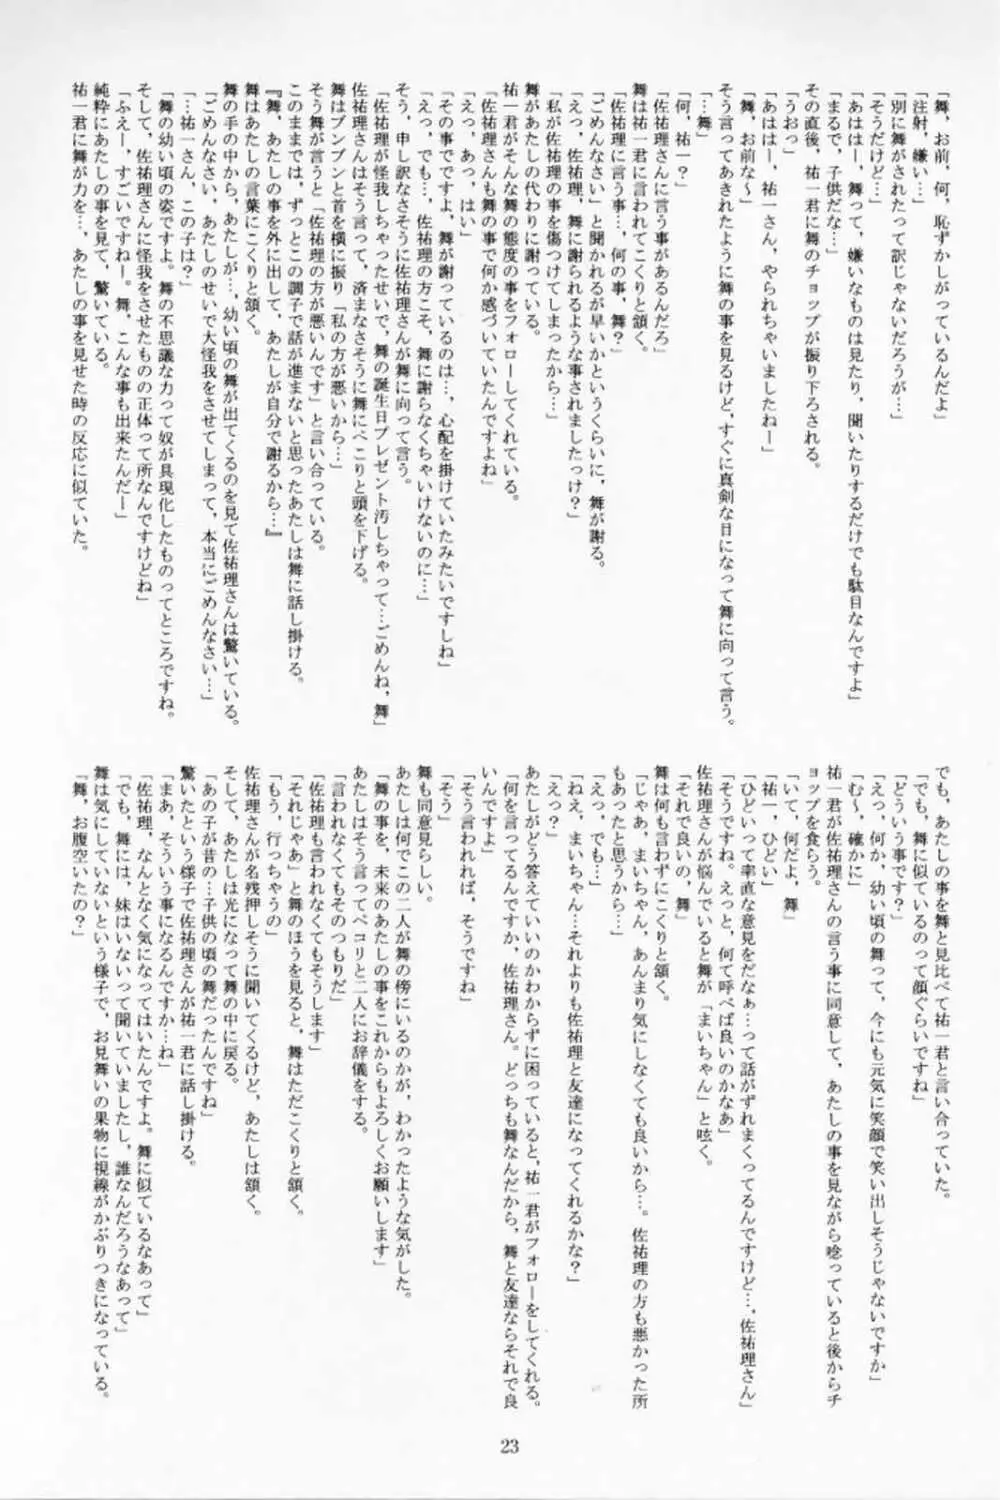 「舞、お前、何、恥ずかしがっているんだよ」
「注射、嫌い…」
「別に舞がされたって訳じゃないだろうが…」
「そうだけど…」
「あははー、舞って、嫌いなものは見たり、聞いたりするだけでも駄目なんですよ」
「まるで、子供だな…」
その直後、祐一君に舞のチョップが振り下ろされる。
「うおっ」
「あははー、祐一さん、やられちゃいましたねー」
「舞、お前な〜」
そう言ってあきれたように舞の事を見るけど、すぐに真剣な目になって舞に向って言う。
「…舞」
「何、祐一?」
「佐祐理さんに言う事があるんだろ」
舞は祐一君に言われてこくりと頷く。
「佐祐理に言う事…、何の事、舞?」
「ごめんなさい」と聞かれるが早いかというくらいに、舞が謝る。
「えっ、佐祐理、舞に謝られるような事されましたっけ?」
「私が佐祐理の事を傷つけてしまったから…」
舞があたしの代わりに謝っている。
祐一君がそんな舞の態度の事をフォローしてくれている。
「佐祐理さんも舞の事で何か感づいていたんですよね」
「えっ、あっ、はい」
「その事ですよ、舞が謝っているのは…、心配を掛けていたみたいですしね」
「えっ、でも…、佐祐理の方こそ、舞に謝らなくちゃいけないのに…」
そう、申し訳なさそうに佐祐理さんが舞に向って言う。
「佐祐理が怪我しちゃったせいで、舞の誕生日プレゼント汚しちゃって…ごめんね、舞」
佐祐理さんはそう言って、済まなさそうに舞にぺこりと頭を下げる。
舞はブンブンと首を横に振り「私の方が悪いから…」
そう舞が言うと「佐祐理の方が悪いんです」と言い合っている。
このままでは、ずっとこの調子で話が進まないと思ったあたしは舞に話し掛ける。
『舞、あたしの事を外に出して、あたしが自分で謝るから…』
舞はあたしの言葉にこくりと頷く。
舞の手の中から、あたしが…、幼い頃の舞が出てくるのを見て佐祐理さんは驚いている。
「ごめんなさい、あたしのせいで大怪我をさせてしまって、本当にごめんなさい…」
「…祐一さん、この子は?」
「舞の幼い頃の姿ですよ。舞の不思議な力って奴が具現化したものってところですね。
そして、佐祐理さんに怪我をさせたものの正体って所なんですけどね」
「ふえー、すごいですねー。舞、こんな事も出来たんだー」
純粋にあたしの事を見て、驚いている。
祐一君に舞が力を…、あたしの事を見せた時の反応に似ていた。
でも、あたしの事を舞と見比べて祐一君と言い合っていた。
「でも、舞に似ているのって顔ぐらいですね」
「どういう事です?」
「えっ、何か、幼い頃の舞って、今にも元気に笑顔で笑い出しそうじゃないですか」
「む〜、確かに」
祐一君が佐祐理さんの言う事に同意して、あたしの事を見ながら唸っていると後からチ
ョップを食らう。
「いて、何だよ、舞」
「祐一、ひどい」
「ひどいって率直な意見をだなぁ…って話がずれまくってるんですけど…、佐祐理さん」
「そうですね。えっと、何て呼べば良いのかなあ」
佐祐理さんが悩んでいると舞が「まいちゃん」と呟く。
「それで良いの、舞」
舞は何も言わずにこくりと頷く。
「じゃあ、まいちゃん、あんまり気にしなくても良いから…。佐祐理の方も悪かった所
もあったと思うから…」
「えっ、でも…」
「ねえ、まいちゃん…それよりも佐祐理と友達になってくれるかな?」
「えっ?」
あたしがどう答えていいのかわからずに困っていると、祐一君がフォローをしてくれる。
「何を言ってるんですか、佐祐理さん。どっちも舞なんだから、舞と友達ならそれで良
いんですよ」
「そう言われれば、そうですね」
「そう」
舞も同意見らしい。
あたしは何でこの二人が舞の傍にいるのかが、わかったような気がした。
「舞の事を、未来のあたしの事をこれからもよろしくお願いします」
あたしはそう言ってペコリと二人にお辞儀をする。
「言われなくてもそのつもりだ」
「佐祐理も言われなくてもそうします」
「それじゃあ」と舞のほうを見ると、舞はただこくりと頷く。
「もう、行っちゃうの」
佐祐理さんが名残押しそうに聞いてくるけど、あたしは頷く。
そして、あたしは光になって舞の中に戻る。
「あの子が昔の…子供の頃の舞だったんですね」
驚いたという様子で佐祐理さんが祐一君に話し掛ける。
「まあ、そういう事になるんですか…ね」
「佐祐理、なんとなく気になってはいたんですよ。舞に似ているなあって」
「でも、舞には、妹はいないって聞いていましたし、誰なんだろうなあって」
舞は気にしていないという様子で、お見舞いの果物に視線がかぶりつきになっている。
「舞、お腹空いたの?」
23